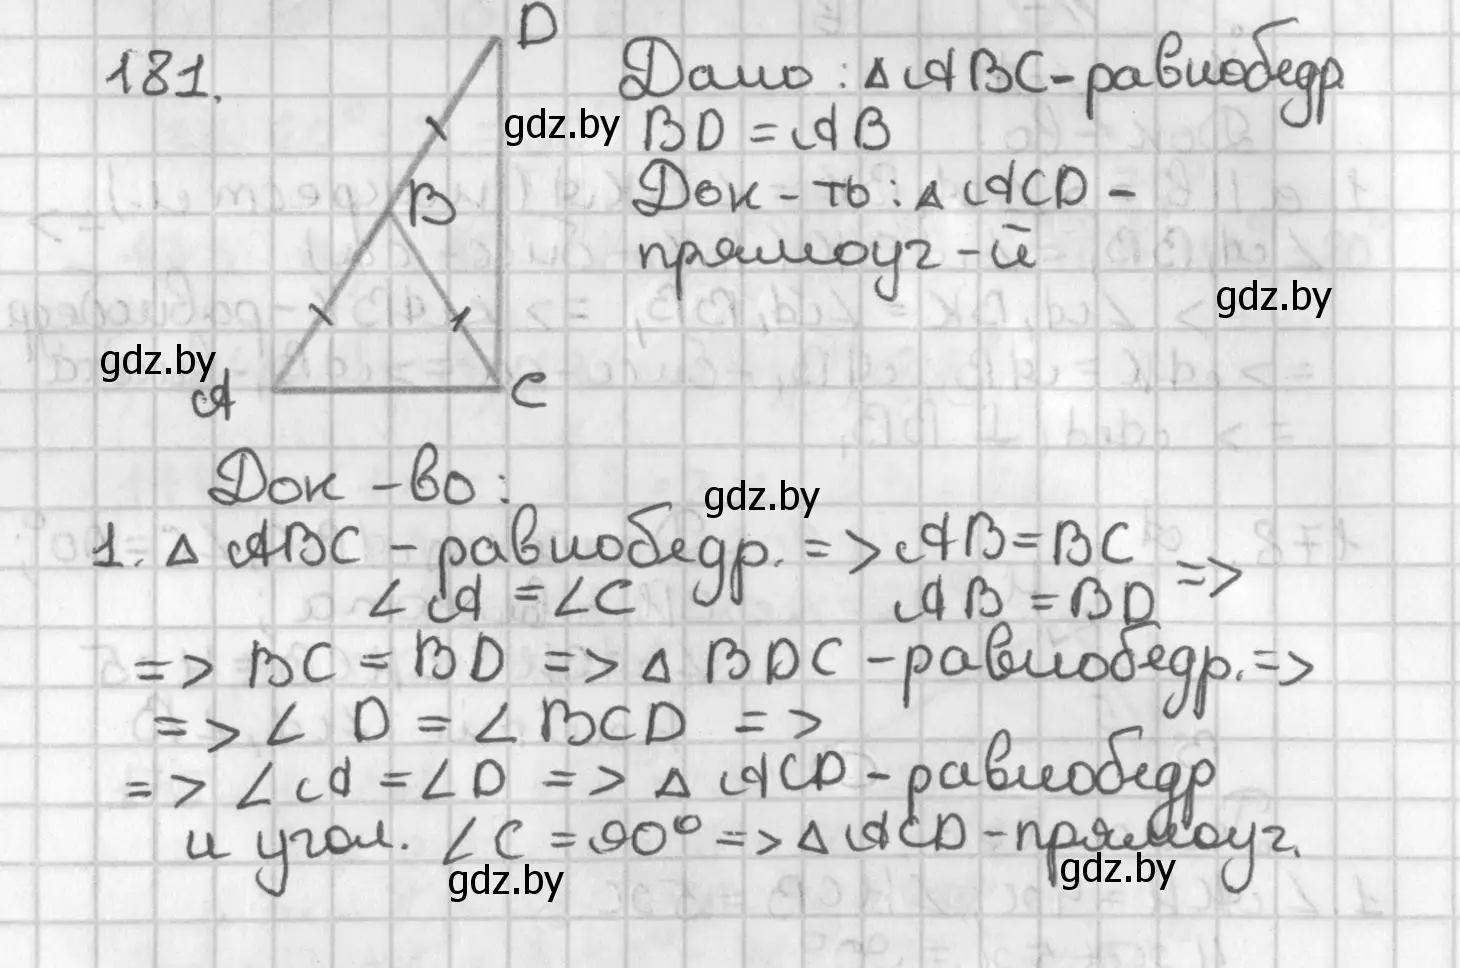 181.
D
B
A
C
Дано: △ ABC - равнобедр
BD = AB
Док - ть: △ ACD -
прямоуг - й
gdz.by
gdz.by
gdz.by
Док - во:
gdz.by
1. △ ABC - равнобедр. => AB = BC
∠A = ∠C AB = BD =>
=> BC = BD => △ BDC - равнобедр. =>
=> ∠ D = ∠ BCD =>
=> ∠A = ∠D => △ ACD - равнобедр
и угол. ∠C = 90° => △ ACD - прямоуг.
gdz.by
gdz.by